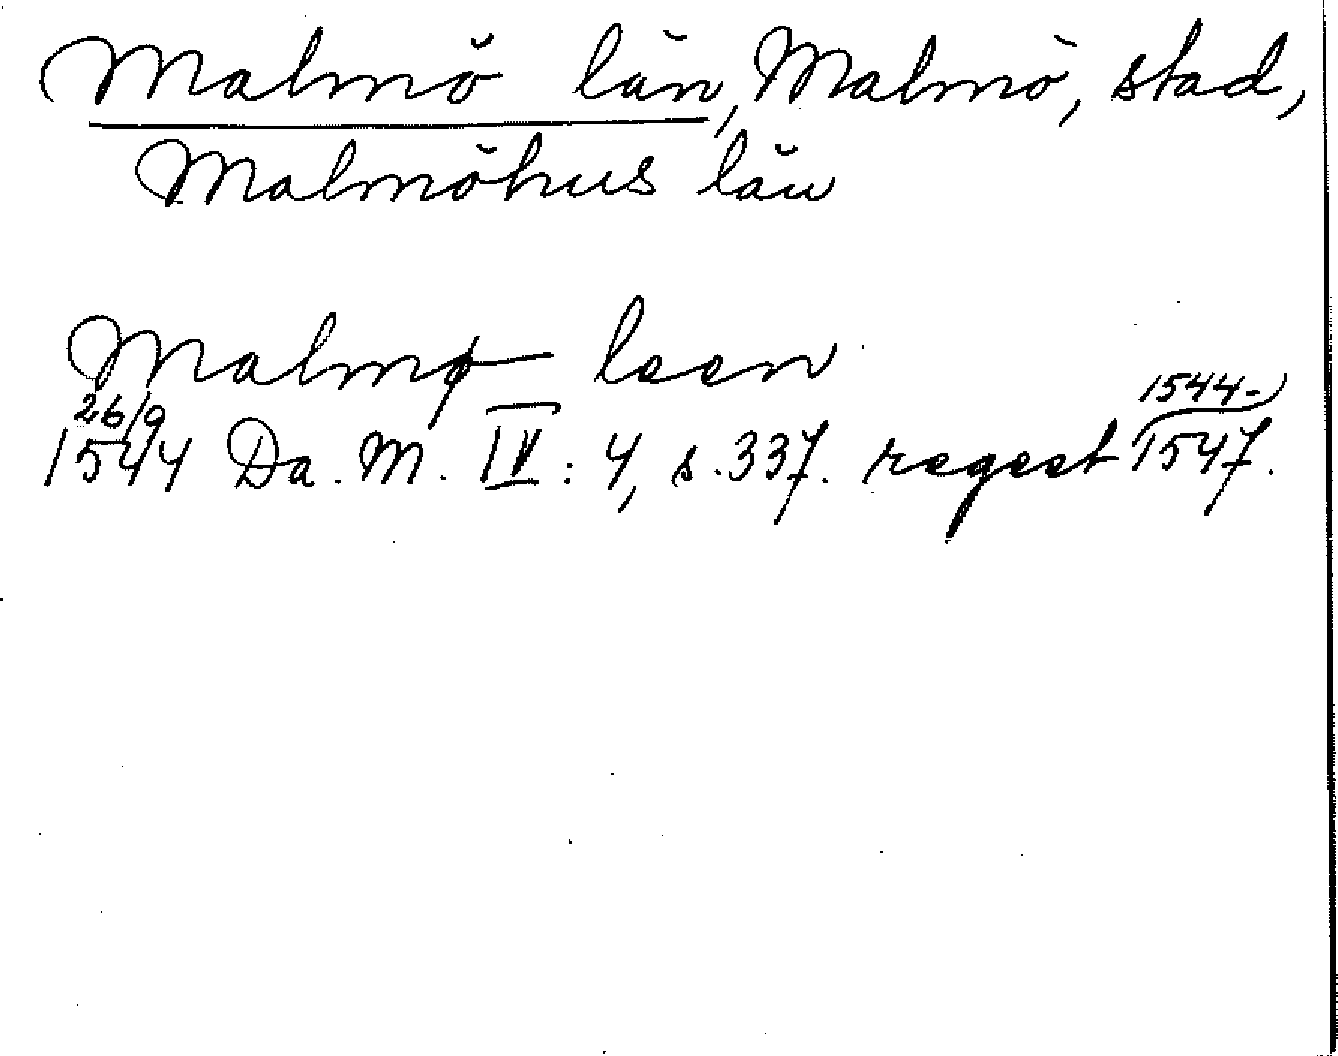 Malmö län, Malmö, stad,
Malmöhus län
Malmø leen
26/9
1544 Da. M. IV: 4, s. 337. regest 1544-1547.